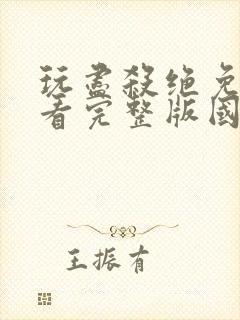 玩盡殺绝免
看完整版國
王振有